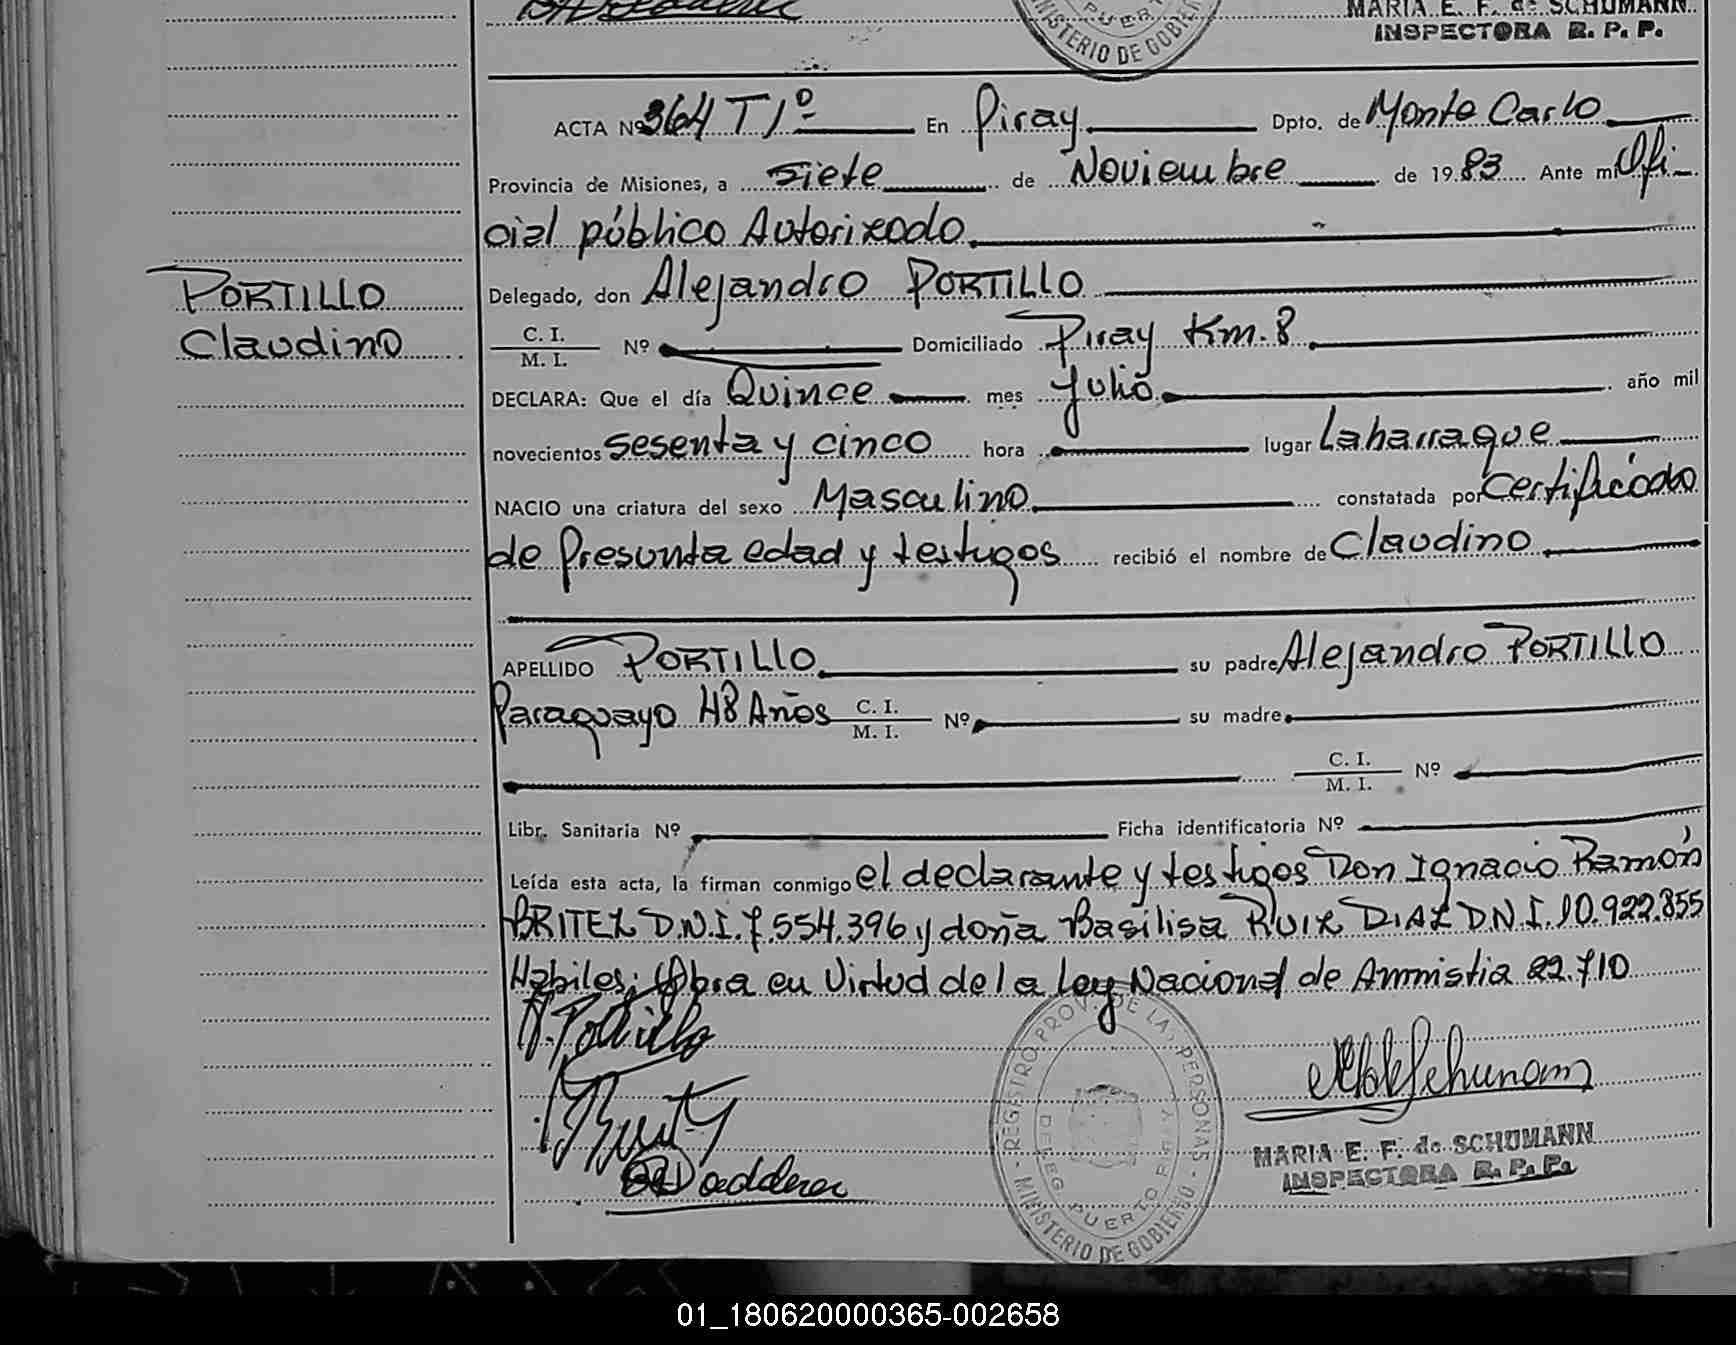 MARIA E. F. de SCHUMANN
INSPECTORA R. P. P.
MINISTERIO DE GOBIERNO
ACTA Nº 364 T 1º En Piray Dpto. de Monte Carlo
Provincia de Misiones, a siete de Noviembre de 1983 Ante mi Ofi-
cial público Autorizado
Delegado, don Alejandro PORTILLO
PORTILLO
Claudino
C. I.
M. I. Nº Domiciliado Piray Km. 8
DECLARA: Que el día Quince mes Julio año mil
novecientos sesenta y cinco hora lugar Laharrague
NACIO una criatura del sexo Masculino constatada por Certificado
de Presunta edad y testigos recibió el nombre de Claudino
APELLIDO PORTILLO su padre Alejandro PORTILLO
Paraguayo 48 Años C. I.
M. I. Nº su madre
C. I.
M. I. Nº
Libr. Sanitaria Nº Ficha identificatoria Nº
Leída esta acta, la firman conmigo el declarante y testigos Don Ignacio Ramón
BRITEZ D.N.I. 7.554.396 y doña Basilisa RUIZ DIAZ D.N.I. 10.922.855
Habiles; Obra en Virtud de la Ley Nacional de Ammistia 22.710
A. Portillo
REGISTRO PROV. DE LA PERSONAS
DELEG. PUERTO PIRAY
MINISTERIO DE GOBIERNO
MARIA E. F. de SCHUMANN
INSPECTORA R. P. P.
01_180620000365-002658